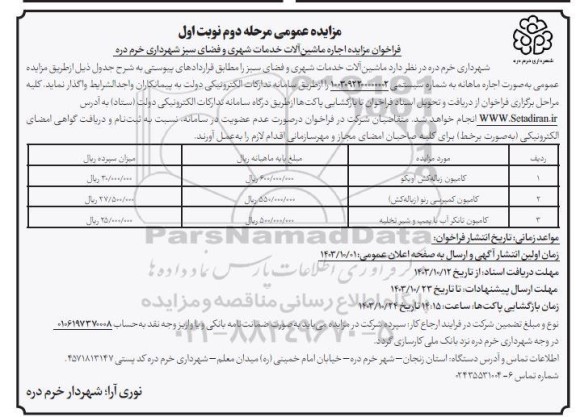 مزایده عمومی مرحله دوم نوبت اول
فراخوان مزایده اجاره ماشین‌آلات خدمات شهری و فضای سبز شهرداری خرم دره
شهرداری خرم دره
شهرداری خرم دره در نظر دارد ماشین‌آلات خدمات شهری و فضای سبز را مطابق قراردادهای پیوستی به شرح جدول ذیل ازطریق مزایده
عمومی به‌صورت اجاره ماهانه به شماره سیستمی را ازطریق سامانه تدارکات الکترونیکی دولت به پیمانکاران واجدالشرایط واگذار نماید. کلیه
مراحل برگزاری فراخوان از دریافت و تحویل اسناد فراخوان تا بازگشایی پاکت‌ها ازطریق درگاه سامانه تدارکات الکترونیکی دولت (ستاد) به آدرس
WWW.Setadiran.ir انجام خواهد شد. متقاضیان شرکت در فراخوان درصورت عدم عضویت در سامانه، نسبت به ثبت‌نام و دریافت گواهی امضای
الکترونیکی (به‌صورت برخط) برای کلیه صاحبان امضای مجاز و مهرسازمانی اقدام لازم را به‌عمل آورند.
ردیف مورد مزایده مبلغ پایه ماهیانه ریال میزان سپرده ریال
۱ کامیون زباله‌کش ایویکو ۶۰۰/۰۰۰/۰۰۰ ریال ۳۰/۰۰۰/۰۰۰ ریال
۲ کامیون کمپرسی رنو (زباله‌کش) ۵۵۰/۰۰۰/۰۰۰ ریال ۲۷/۵۰۰/۰۰۰ ریال
۳ کامیون تانکر آب با پمپ و شیر تخلیه ۵۰۰/۰۰۰/۰۰۰ ریال ۲۵/۰۰۰/۰۰۰ ریال
مواعد زمانی: تاریخ انتشار فراخوان:
زمان اولین انتشار آگهی و ارسال به صفحه اعلان عمومی: ۱۴۰۳/۱۰/۰۱
مهلت دریافت اسناد: از تاریخ ۱۴۰۳/۱۰/۱۲
مهلت ارسال پیشنهادات: تا تاریخ ۱۴۰۳/۱۰/۲۳
زمان بازگشایی پاکت‌ها، ساعت: ۱۴:۱۵ تاریخ ۱۴۰۳/۱۰/۲۴
نوع و مبلغ تضمین شرکت در فرایند ارجاع کار: سپرده شرکت در مزایده می‌باید به صورت ضمانت‌نامه بانکی و یا واریز وجه نقد به حساب ۰۱۰۶۱۹۷۳۷۰۰۰۸
در وجه شهرداری خرم دره نزد بانک ملی کارسازی گردد.
اطلاعات تماس و آدرس دستگاه: استان زنجان – شهر خرم دره – خیابان امام خمینی (ره) میدان معلم – شهرداری خرم دره کد پستی ۴۵۷۱۸۱۳۱۴۷
شماره تماس ۶-۰۲۴۳۵۵۳۱۰۰۴
نوری آرا؛ شهردار خرم دره
ParsNamadData
پایگاه اطلاع رسانی مناقصه و مزایده
۰۲۱-۸۸۳۴۹۶۷۰-۵